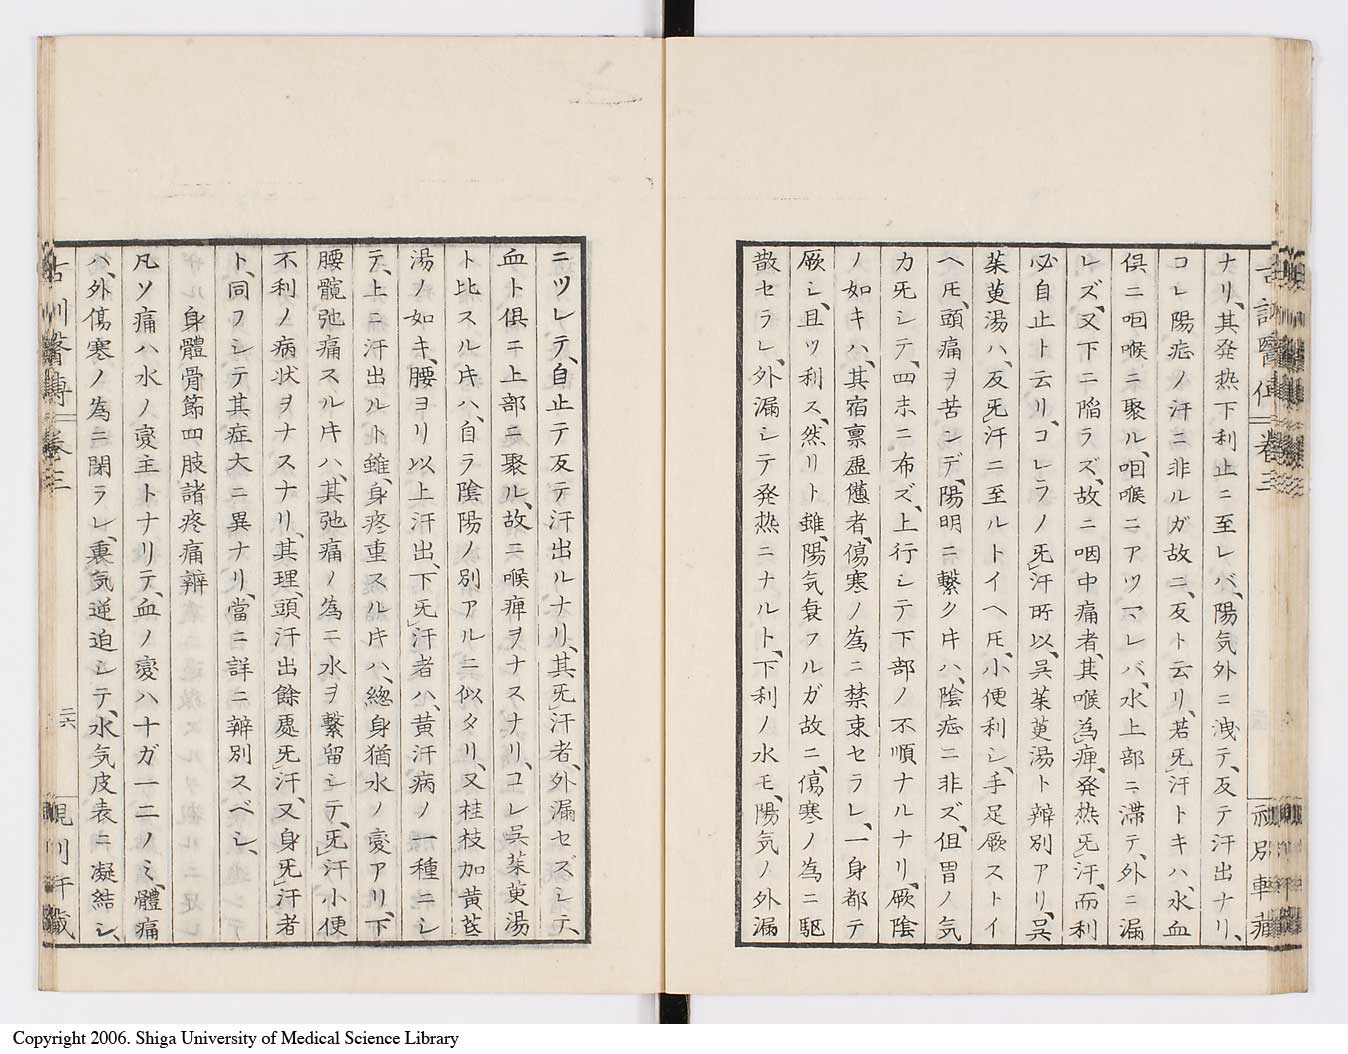 ナリ、其発热下利止ニ至レバ、陽気外ニ洩テ、反テ汗出ナリ、
コレ陽症ノ汗ニ非ルガ故ニ、反ト云リ、若旡汗トキハ、水血
倶ニ咽喉ニ聚ル、咽喉ニアツマレバ、水上部ニ滞テ、外ニ漏
レズ、又下ニ陥ラズ、故ニ咽中痛者、其喉為痺、発热旡汗、而利
必自止ト云リ、コレラノ旡汗所以、呉茱萸湯ト辨別アリ、呉
茱萸湯ハ、反旡汗ニ至ルトイヘ𪜈、小便利シ、手足厥ストイ
ヘ𪜈、頭痛ヲ苦ンデ、陽明ニ繫クキハ、陰症ニ非ズ、但胃ノ気
力旡シテ、四末ニ布ズ、上行シテ下部ノ不順ナルナリ、厥陰
ノ如キハ、其宿禀虚憊者、傷寒ノ為ニ禁束セラレ、一身都テ
厥シ、且ツ利ス、然リト雖、陽気衰フルガ故ニ、傷寒ノ為ニ駆
散セラレ、外漏シテ発热ニナルト、下利ノ水モ、陽気ノ外漏
ニツレテ、自止テ反テ汗出ルナリ、其旡汗者、外漏セズシテ、
血ト倶ニ上部ニ聚ル、故ニ喉痺ヲナスナリ、コレ呉茱萸湯
ト比スルキハ、自ラ陰陽ノ別アルニ似タリ、又桂枝加黄芪
湯ノ如キ、腰ヨリ以上汗出、下旡汗者ハ、黄汗病ノ一種ニシ
テ、上ニ汗出ルト雖、身疼重スルキハ、緫身猶水ノ変アリ、下
腰髖弛痛スルキハ、其弛痛ノ為ニ水ヲ繫留シテ、旡汗小便
不利ノ病状ヲナスナリ、其理、頭汗出餘處旡汗、又身旡汗者
ト、同フシテ其症大ニ異ナリ、當ニ詳ニ辨別スベシ、
身體骨節四肢諸疼痛辨
凡ソ痛ハ水ノ変主トナリテ、血ノ変ハ十ガ一二ノミ、體痛
ハ、外傷寒ノ為ニ閉ラレ、裏気逆迫シテ、水気皮表ニ凝結シ、
二六
Copyright 2006. Shiga University of Medical Science Library